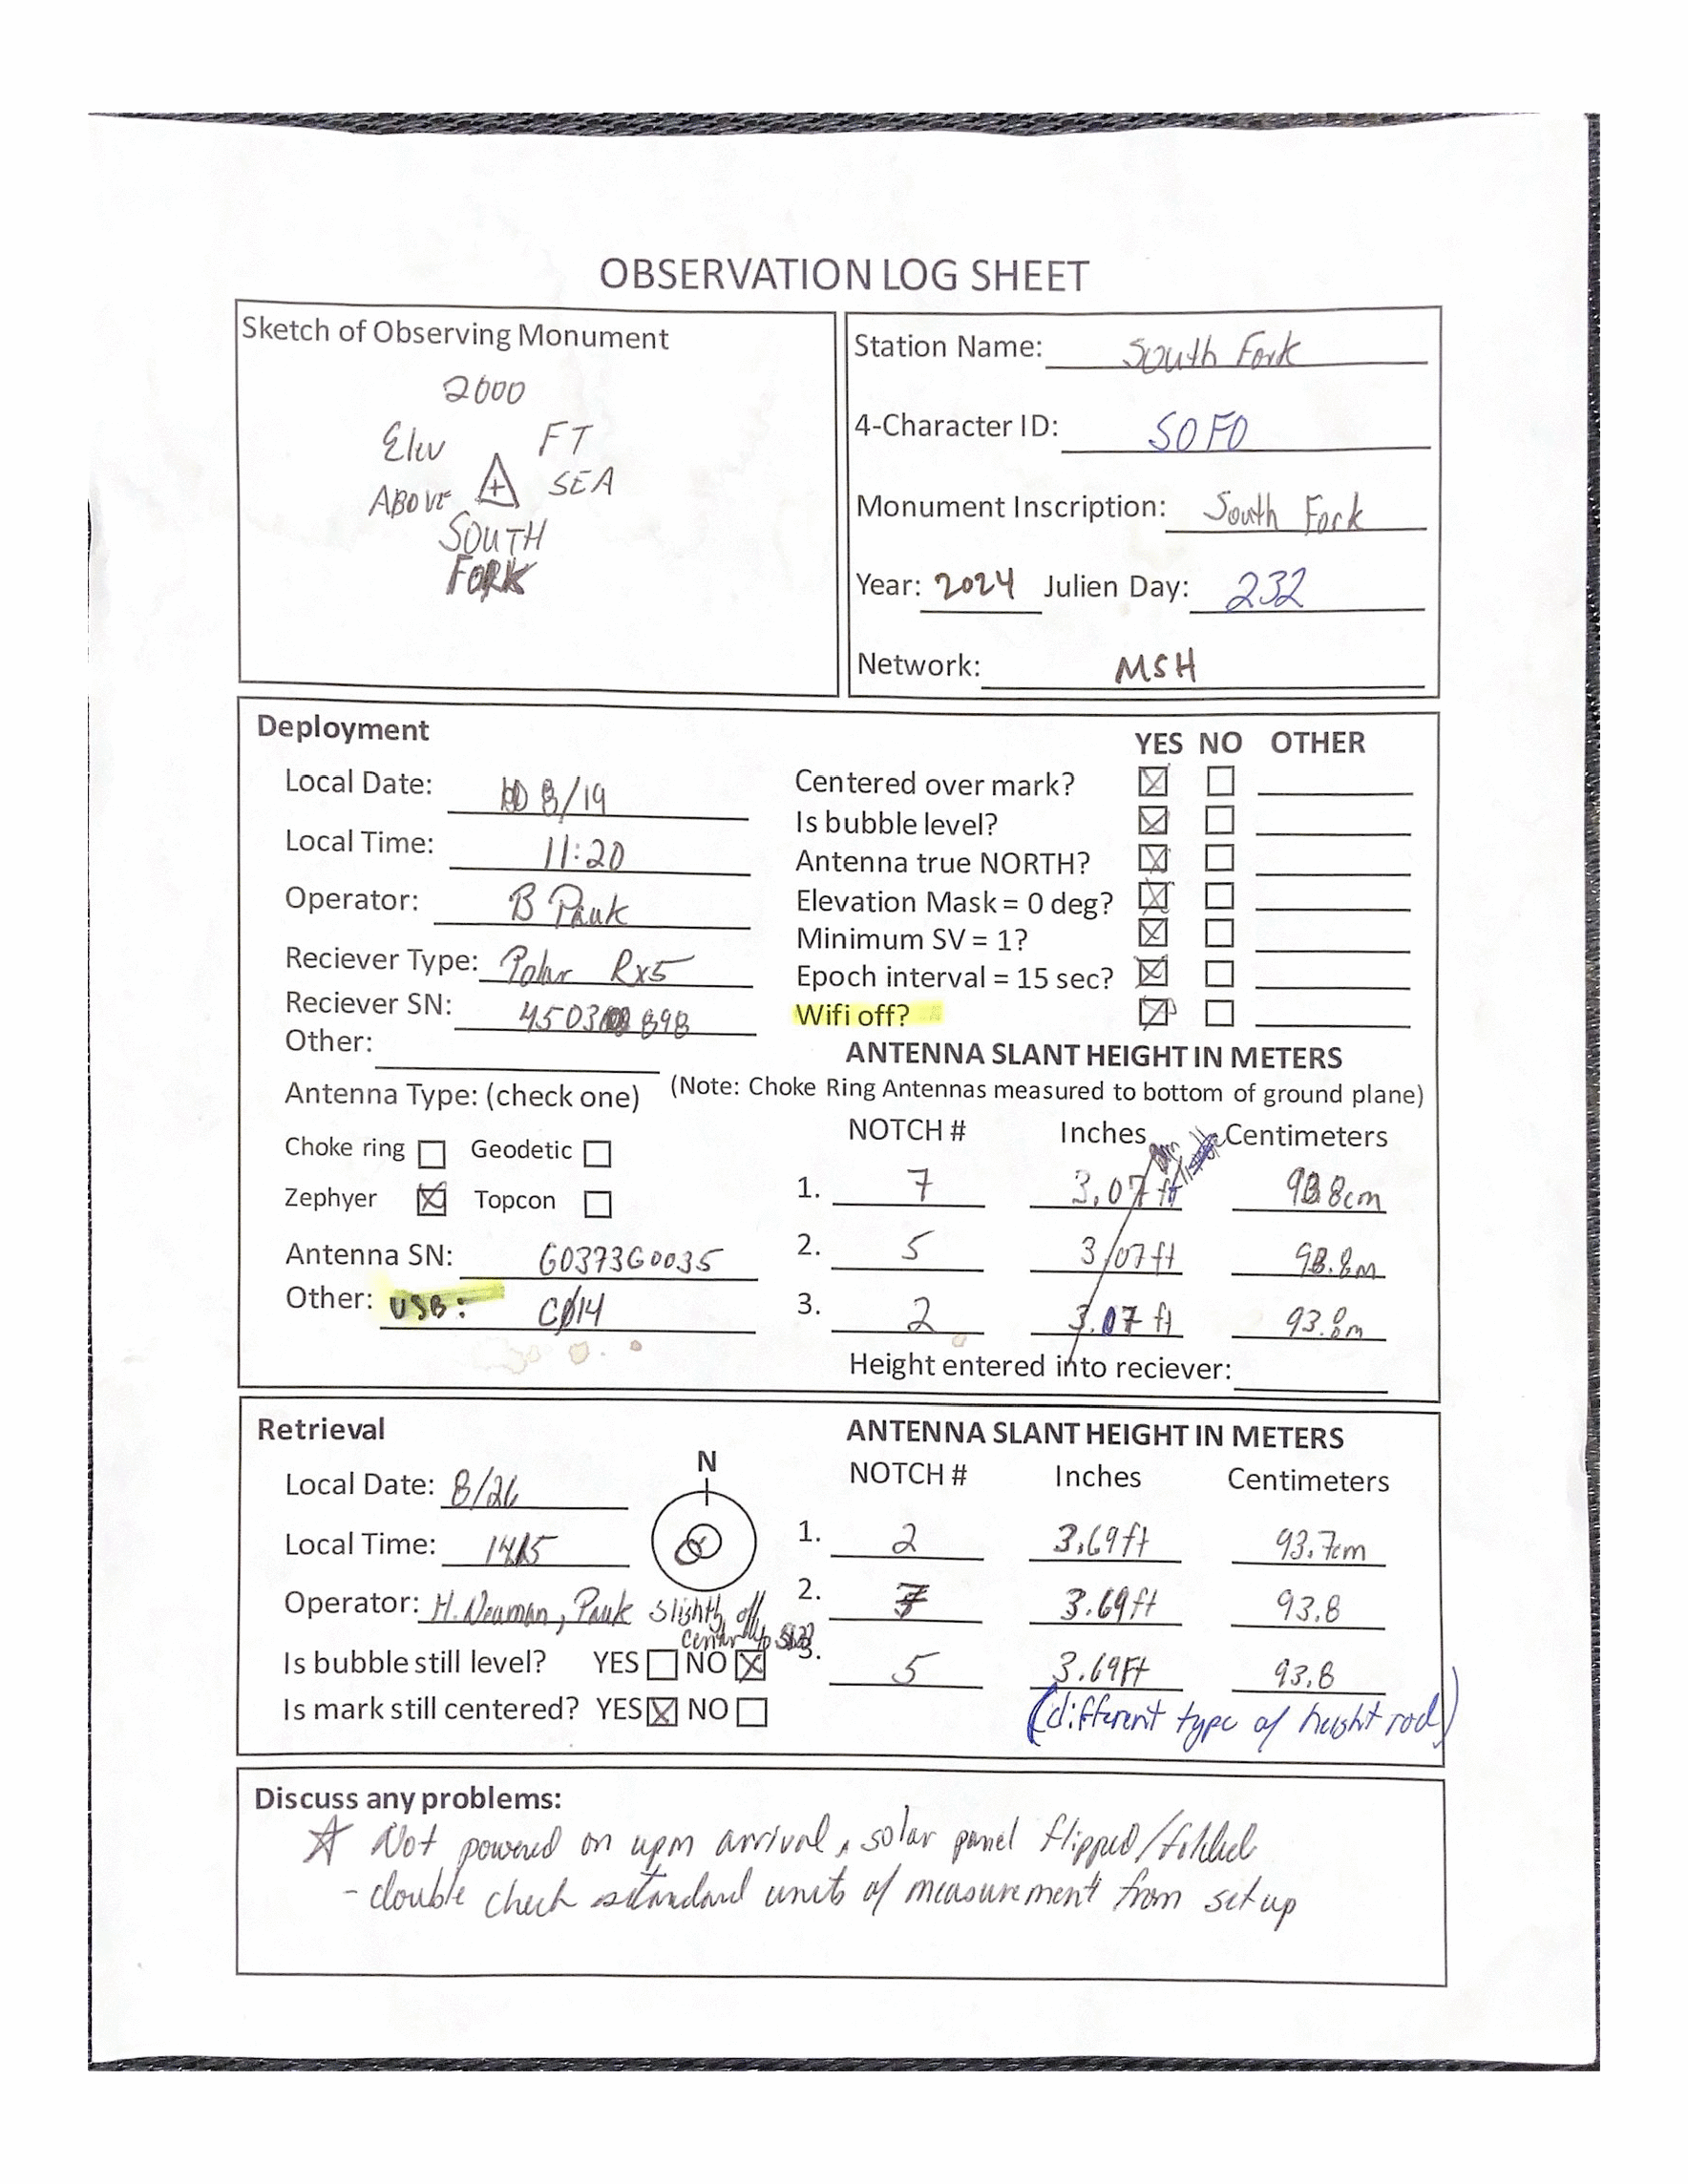 OBSERVATION LOG SHEET
Sketch of Observing Monument
2000
Elev FT
ABOVE SEA
SOUTH
FORK
Station Name: South Fork
4-Character ID: SOFO
Monument Inscription: South Fork
Year: 2024 Julien Day: 232
Network: MSH
Deployment
Local Date: 8/19
Local Time: 11:20
Operator: B Pauk
Reciever Type: Polar Rx5
Reciever SN: 4503 898
Other:
Antenna Type: (check one)
Choke ring Geodetic
Zephyer Topcon
Antenna SN: 60373G0035
Other: USB: CØ14
YES NO OTHER
Centered over mark?
Is bubble level?
Antenna true NORTH?
Elevation Mask = 0 deg?
Minimum SV = 1?
Epoch interval = 15 sec?
Wifi off?
ANTENNA SLANT HEIGHT IN METERS
(Note: Choke Ring Antennas measured to bottom of ground plane)
NOTCH # Inches Centimeters
1. 7 3.07 ft 93.8cm
2. 5 3.07ft 93.8m
3. 2 3.07 ft 93.8m
Height entered into reciever:
Retrieval
Local Date: 8/26
Local Time: 1415
Operator: H. Neuman, Pauk
N
slightly off
center
Is bubble still level? YES NO
Is mark still centered? YES NO
ANTENNA SLANT HEIGHT IN METERS
NOTCH # Inches Centimeters
1. 2 3.69ft 93.7cm
2. 7 3.69ft 93.8
3. 5 3.69Ft 93.8
(different type of height rod)
Discuss any problems:
☆ Not powered on upon arrival, solar panel flipped/folded
- double check standard units of measurement from set up